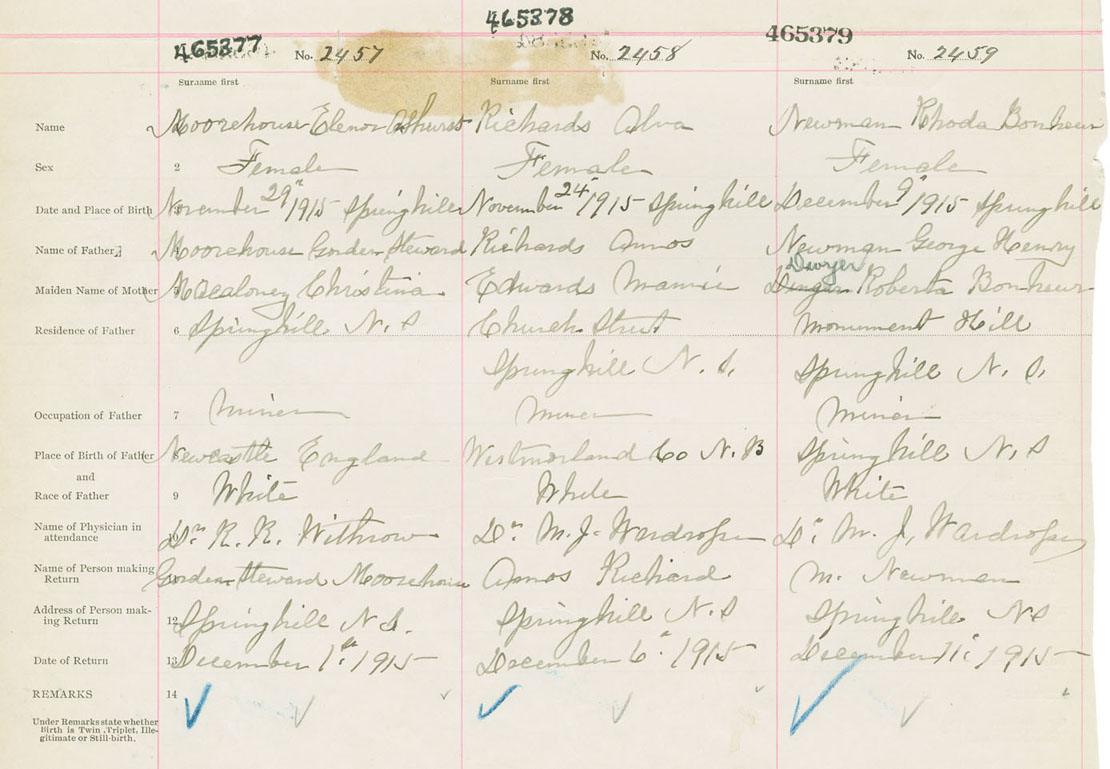 465377 465378 465379
No. 2457 No. 2458 No. 2459
Surname first Surname first Surname first
Name Moorehouse Elenor Ashurst Richards Alva Newman Rhoda Bonheur
Sex 2 Female Female Female
Date and Place of Birth November 29" 1915 Springhill November 24" 1915 Springhill December 9" 1915 Springhill
Name of Father Moorehouse Gorden Steward Richards Amos Newman George Henry
Dwyer
Maiden Name of Mother 5 Macaloney Christina Edwards Mamie Roberta Bonheur
Residence of Father 6 Springhill N.S Church Street Monument Hill
Springhill N.S. Springhill N.S.
Occupation of Father 7 Miner Miner Miner
Place of Birth of Father Newcastle England Westmorland Co N.B Springhill N.S
and
Race of Father 9 White White White
Name of Physician in
attendance 10 Dr. R.R. Withrow Dr. M.J. Wardrope Dr. M.J. Wardrope
Name of Person making
Return Gorden Steward Moorehouse Amos Richard M. Newman
Address of Person mak-
ing Return 12 Springhill N.S. Springhill N.S Springhill NS
Date of Return 13 December 1st. 1915 December 6". 1915 December 11". 1915
REMARKS 14
Under Remarks state whether
Birth is Twin, Triplet, Ille-
gitimate or Still-birth.